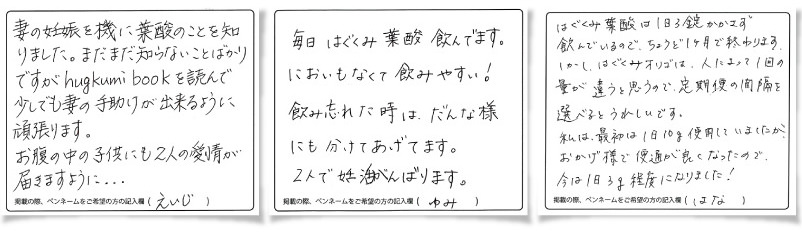 妻の妊娠を機に葉酸のことを知
りました。まだまだ知らないことばかり
ですがhugkumi bookを読んで
少しでも妻の手助けが出来るように
頑張ります。
お腹の中の子供にも2人の愛情が
届きますように...
掲載の際、ペンネームをご希望の方の記入欄(えいじ)
毎日 はぐくみ 葉酸 飲んでます。
においもなくて 飲みやすい!
飲み忘れた 時は、だんな様
にも 分けて あげてます。
2人で 妊活がんばります。
掲載の際、ペンネームをご希望の方の記入欄(ゆみ)
はぐくみ 葉酸は 1日3錠 かかさず
飲んでいるので、ちょうど1ヶ月で終わります。
しかし、はぐくみオリゴは、人によって1回の
量が 違うと思うので、定期便の間隔を
選べるとうれしいです。
私は、最初は1日10g使用していましたが、
おかげ様で便通が良くなったので、
今は1日3g程度になりました!
掲載の際、ペンネームをご希望の方の記入欄(はな)